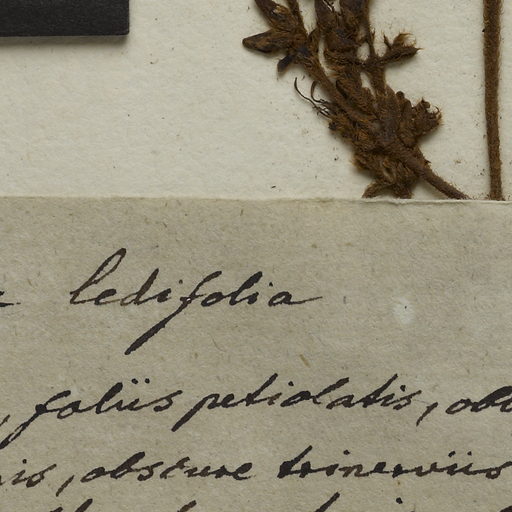 ledifolia
, foliis petiolatis, obl
is, obscure trinerviis